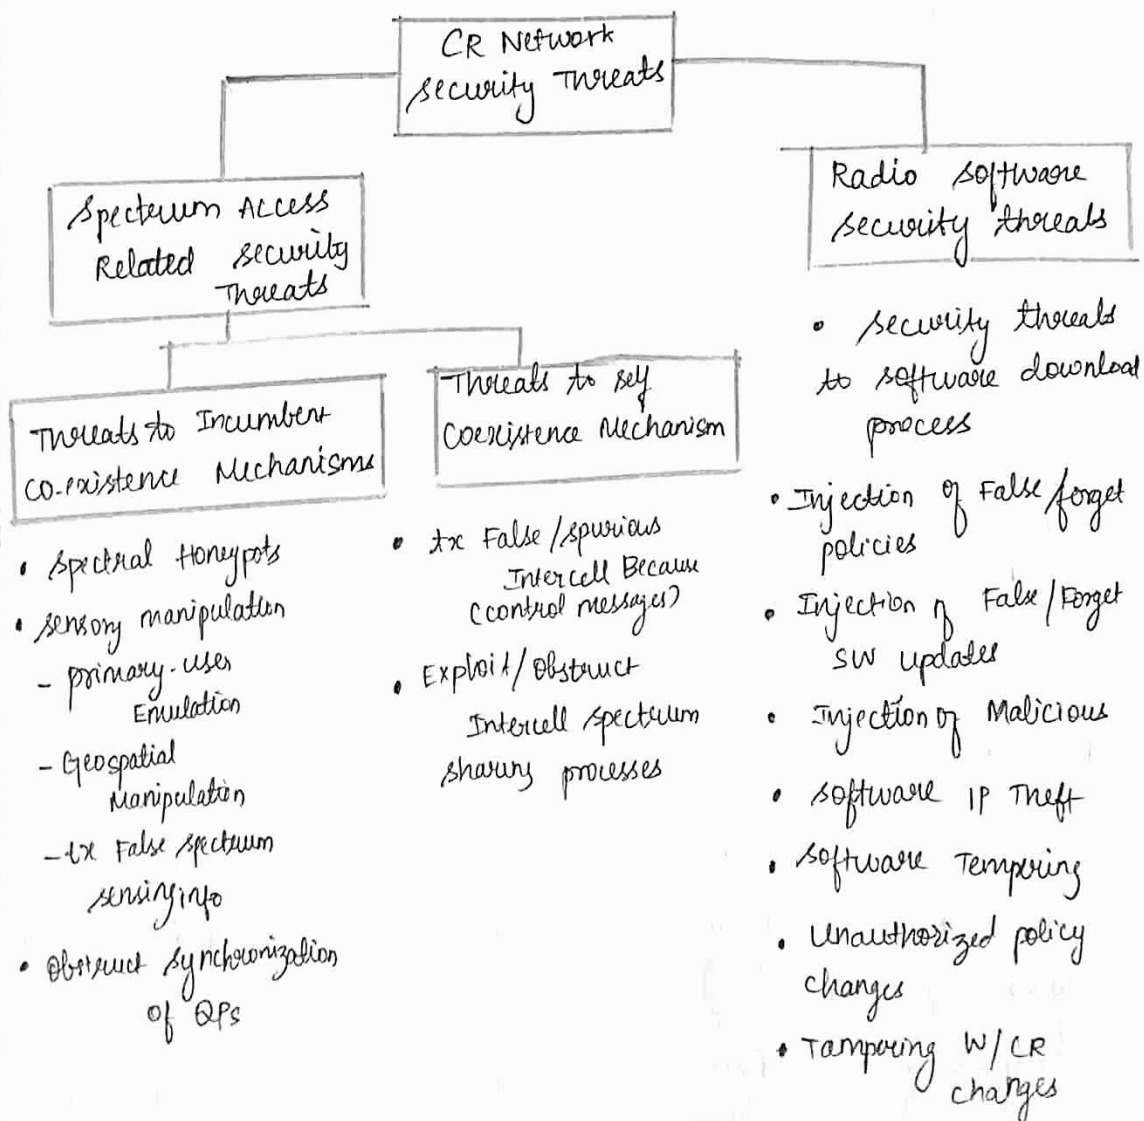 CR Network
Security Threats
Spectrum Access
Related Security
Threats
Radio Software
Security threats
Threats to Incumbent
Co-existence Mechanisms
Threats to self
Coexistence Mechanism
• Spectral Honeypots
• Sensory manipulation
- primary-user
Emulation
- Geospatial
Manipulation
- tx False spectrum
sensing info
• Obstruct synchronization
of QPs
• tx False/spurious
Intercell Because
(control messages)
• Exploit/Obstruct
Intercell spectrum
sharing processes
• Security threats
to software download
process
• Injection of False/forget
policies
• Injection of False/Forget
SW updates
• Injection of Malicious
• Software IP Theft
• Software Tempering
• Unauthorized policy
changes
• Tampering W/CR
changes